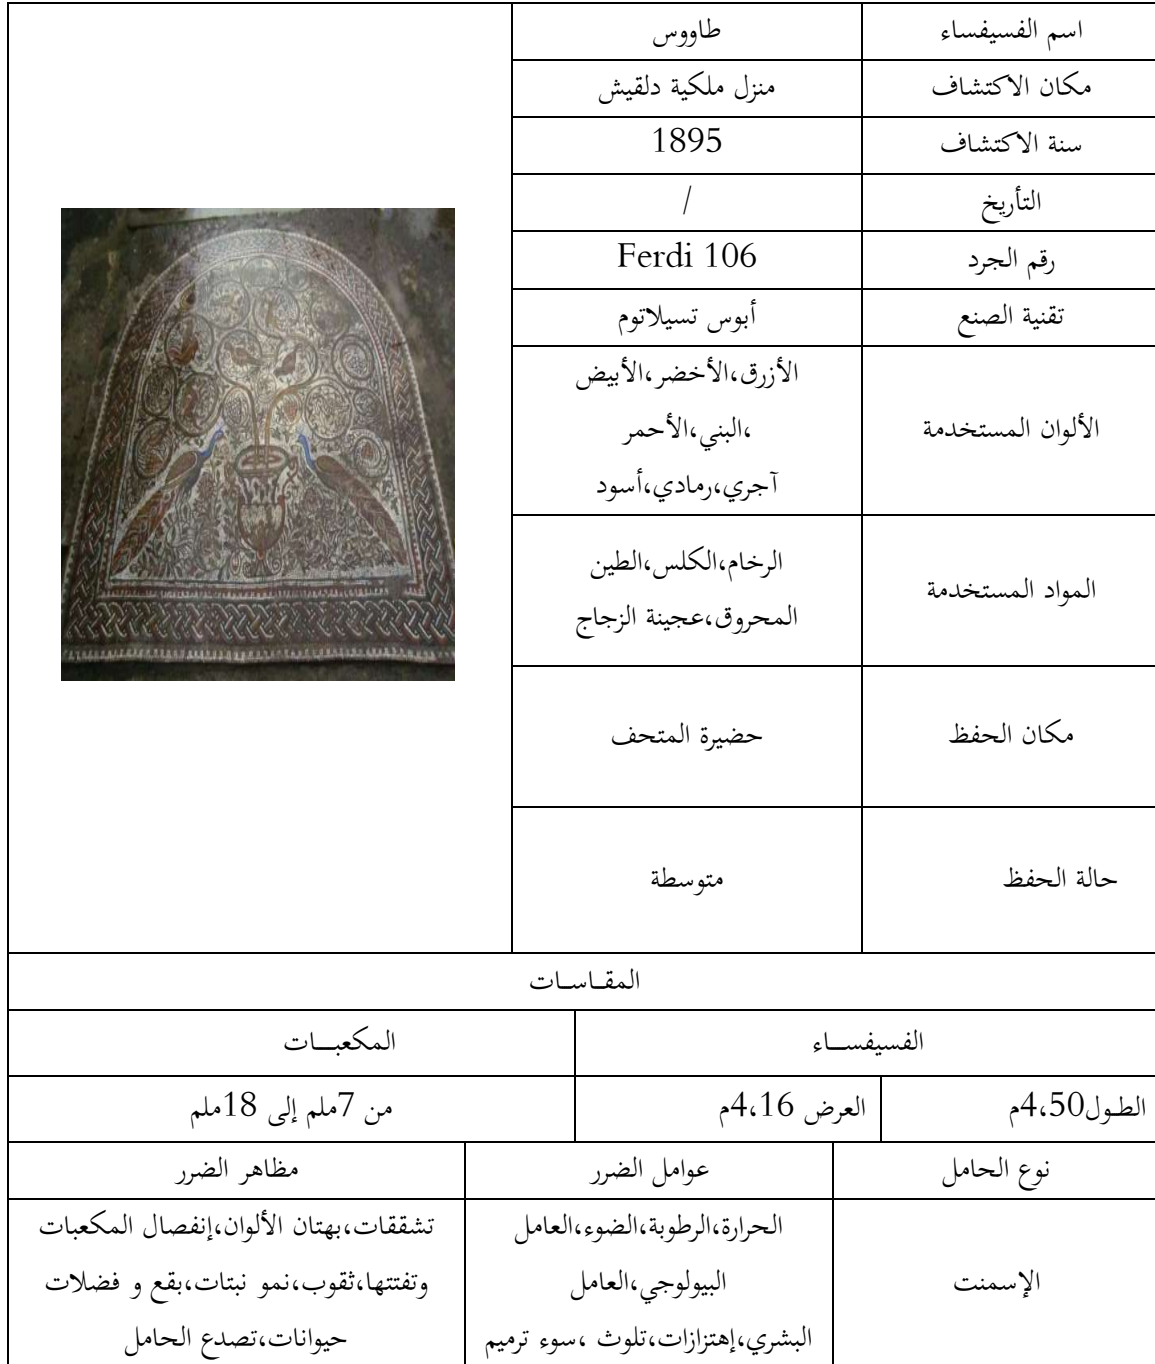 اسم الفسيفساء
طاووس
مكان الاكتشاف
منزل ملكية دلقيش
سنة الاكتشاف
1895
التأريخ
/
رقم الجرد
Ferdi 106
تقنية الصنع
أبوس تسيلاتوم
الألوان المستخدمة
الأزرق،الأخضر،الأبيض
،البني،الأحمر
آجري،رمادي،أسود
المواد المستخدمة
الرخام،الكلس،الطين
المحروق،عجينة الزجاج
مكان الحفظ
حضيرة المتحف
حالة الحفظ
متوسطة
المقـاسـات
الفسيفسـاء
المكعبـات
الطـول4،50م
العرض 4،16م
من 7ملم إلى 18ملم
نوع الحامل
عوامل الضرر
مظاهر الضرر
الإسمنت
الحرارة،الرطوبة،الضوء،العامل
البيولوجي،العامل
البشري،إهتزازات،تلوث ،سوء ترميم
تشققات،بهتان الألوان،إنفصال المكعبات
وتفتتها،ثقوب،نمو نبتات،بقع و فضلات
حيوانات،تصدع الحامل